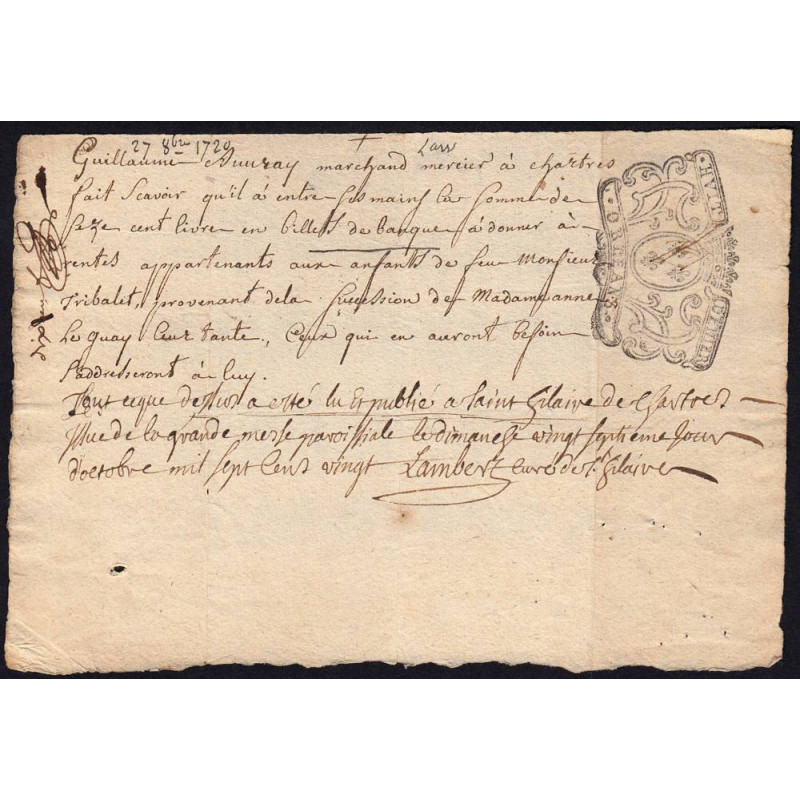 27 8bre 1720
Law
Guillaume Auuray marchand mercier à chartres
fait scavoir qu'il à entre ses mains la somme de
seze cent livre en billets de banque à donner à
rentes appartenants aux anfants de feu Monsieur
Tribalet, provenant dela succession de Madame anne
Le guay leur tante, ceux qui en auront besoin
s'addresseront à luy.
Tout ceque dessus a esté lu et publié a Saint hilaire de chartres
issue de la grande messe paroissiale le dimanche vingt septieme jour
d'octobre mil sept cens vingt Lambert curé de St hilaire
HUIT
DENIERS
ORLEANS